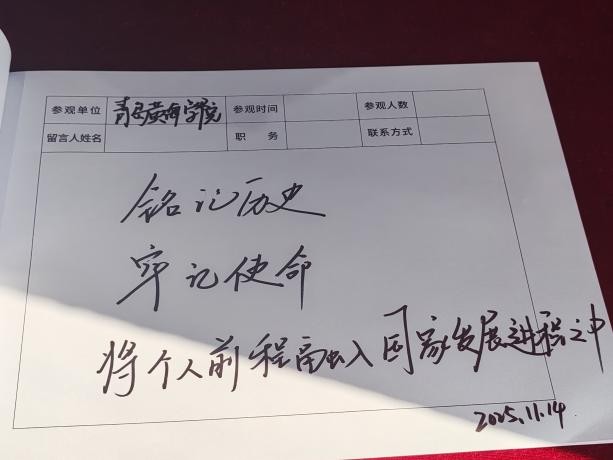 参观单位 青岛黄海学院 参观时间 参观人数
留言人姓名 职 务 联系方式
铭记历史
牢记使命
将个人前程融入国家发展进程之中
2025.11.14